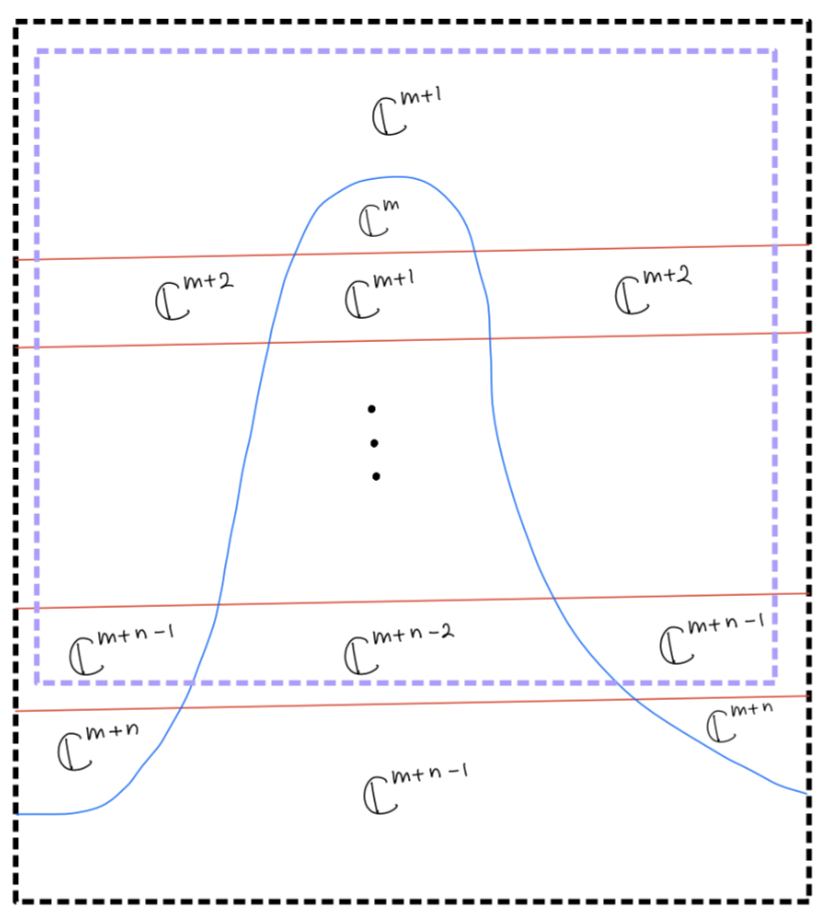 ℂ^{m+1}
ℂ^{m}
ℂ^{m+2} ℂ^{m+1} ℂ^{m+2}
ℂ^{m+n-1} ℂ^{m+n-2} ℂ^{m+n-1}
ℂ^{m+n} ℂ^{m+n}
ℂ^{m+n-1}